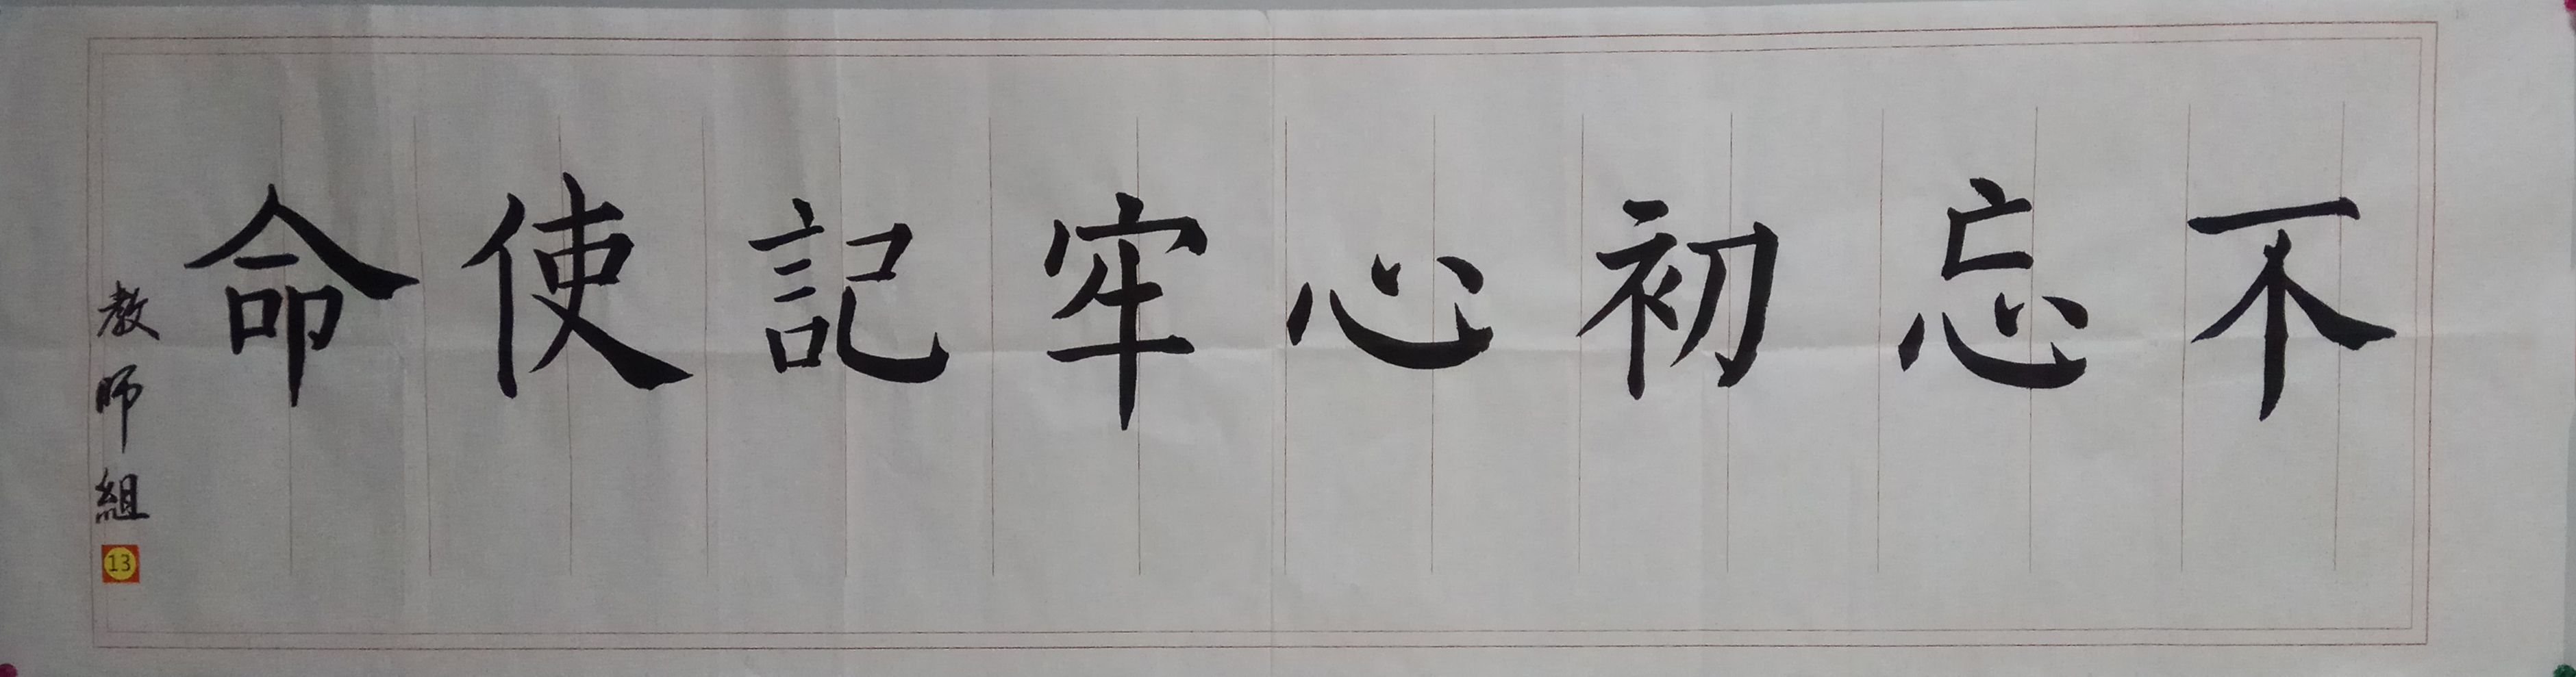 不忘初心牢記使命
教師組
13